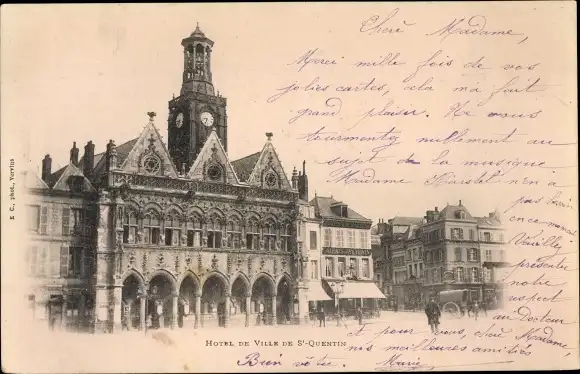 Cherè Madame,
Merci mille fois de vos
jolies cartes, cela m'a fait
grand plaisir. Ne vous
tourmentez nullement au
sujet de la musique
Madame Harstel n'en a
pas besoin
en ce moment.
Veuillez
présenter
notre
respect
au Docteur
et pour vous, chère Madame,
nos meilleures amitiés
Bien vôtre. Marie
E. C., phot., Vervins
HOTEL DE VILLE DE ST-QUENTIN